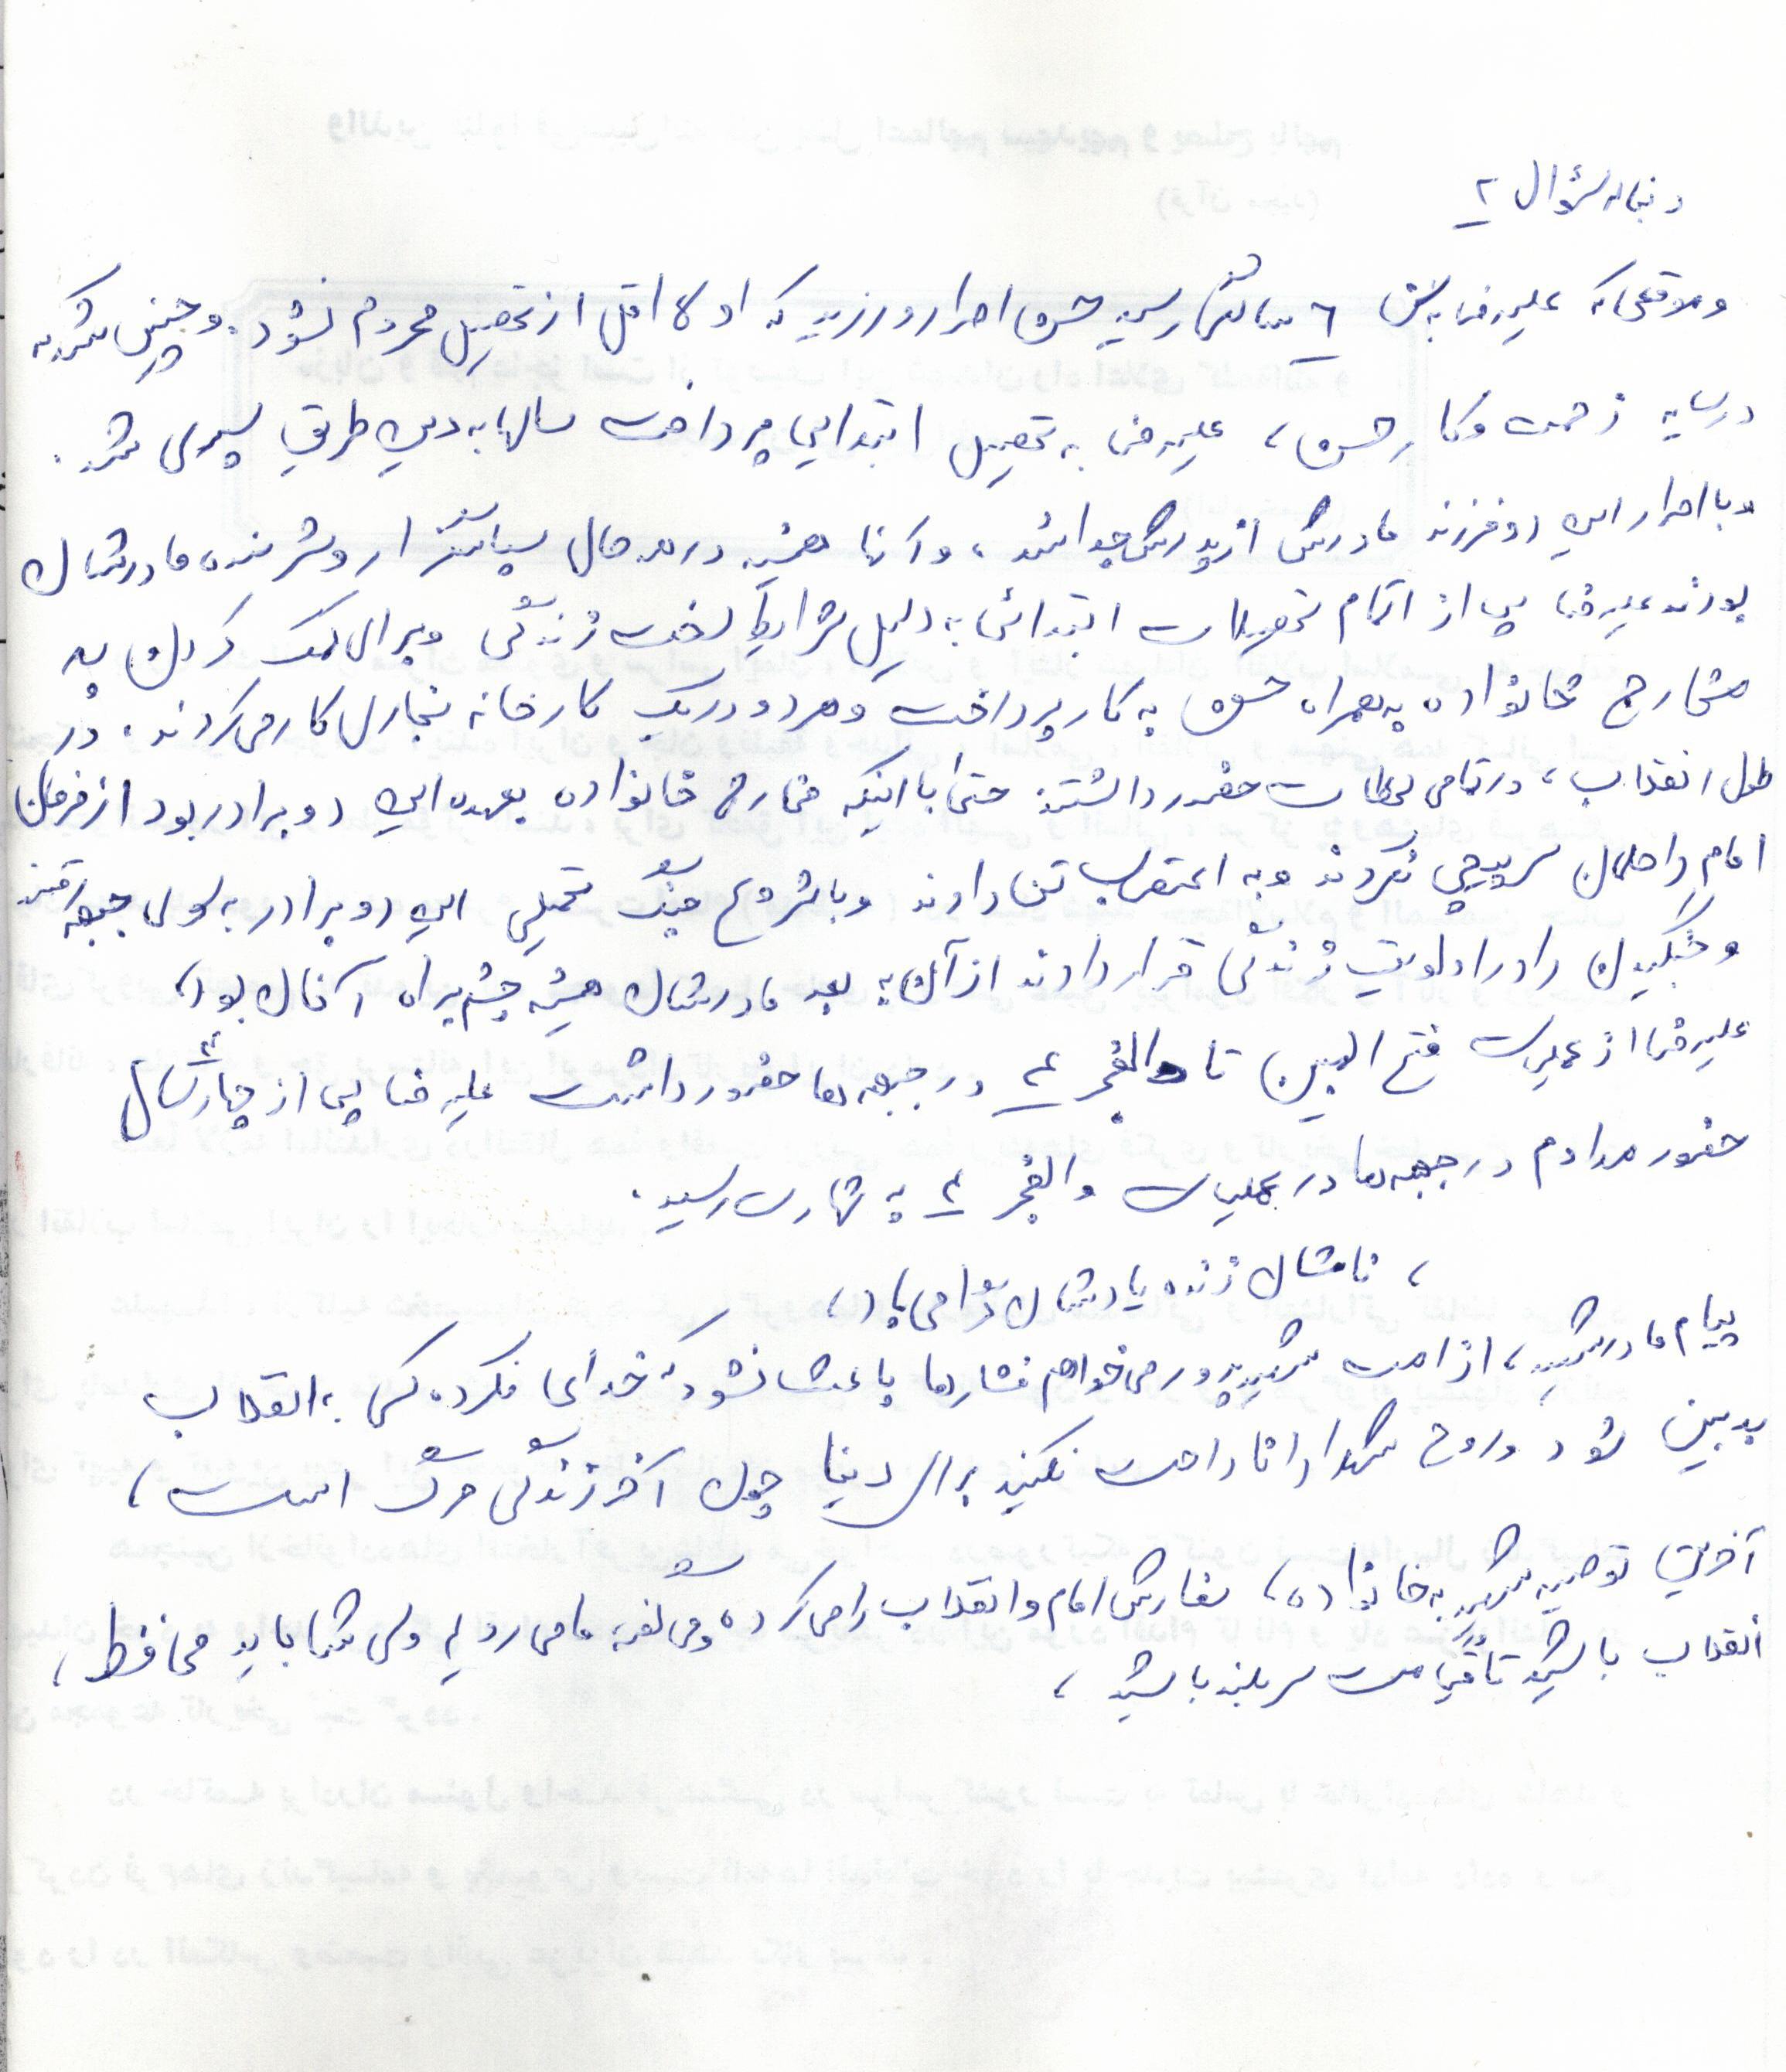 دنباله سؤال ۲
و موقعی که علیرضا به سن ۶ سالگی رسید حسن اصرار ورزید که او لااقل از تحصیل محروم نشود. و چنین شد که
در سایه زحمت و کار حسن، علیرضا به تحصیل ابتدایی پرداخت سالها به دین طریق سپری شد.
و با اصرار این دو فرزند مادرش از پدرش جدا شد، و آنها همیشه در همه حال سپاسگزار و شرمنده مادرشان
بودند علیرضا پس از اتمام تحصیلات ابتدائی به دلیل شرایط سخت زندگی و برای کمک کردن به
مخارج خانواده به همراه حسن به کار پرداخت و هر دو در یک کارخانه نجاری کار می کردند. در
طول انقلاب، در تمامی لحظات حضور داشتند حتی با اینکه مخارج خانواده بعهده این دو برادر بود از فرمان
امام راحلمان سرپیچی نکردند و به اعتصاب تن دادند و با شروع جنگ تحمیلی این دو برادر به سوی جبهه رفتند
و جنگیدن را در اولویت زندگی قرار دادند از آن به بعد مادرشان همیشه چشم براه آنان بود،
علیرضا از عملیات فتح المبین تا والفجر ۴ در جبهه ها حضور داشت علیرضا پس از چهار سال
حضور مداوم در جبهه ها در عملیات والفجر ۴ به شهادت رسید.
، نامشان زنده یادشان گرامی باد،
پیام مادر شهید، از امت شهید پرور می خواهم فشارها باعث نشود که خدای نکرده کسی به انقلاب
بدبین شود و روح شهدا را ناراحت نکنید برای دنیا چون آخر زندگی مرگ است،
آخرین توصیه شهید به خانواده، سفارش امام و انقلاب را می کرده و می گفته ما می رویم ولی شما باید محافظ،
انقلاب باشید تا قیامت سربلند باشید،